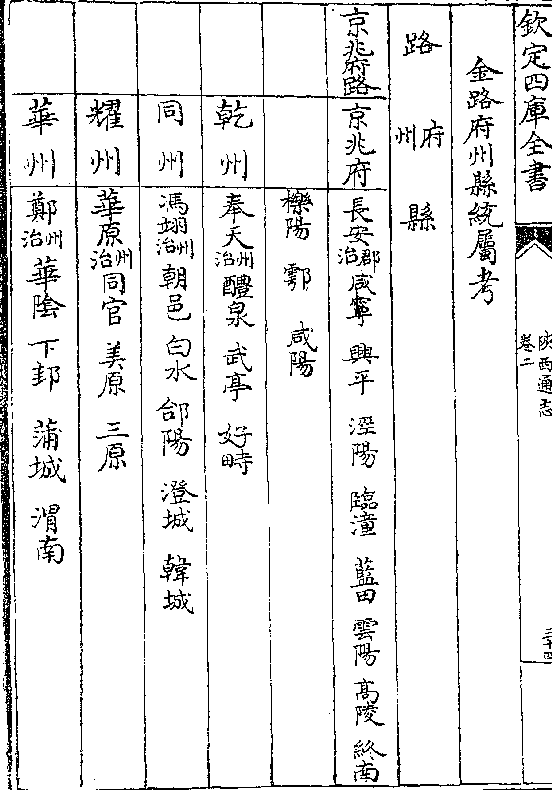 欽定四庫全書
陝西通志
卷二
三十四
金路府州縣統屬考
路 府州 縣
京兆府路 京兆府 長安郡治 咸寧 興平 涇陽 臨潼 藍田 雲陽 高陵 終南
櫟陽 鄠 咸陽
乾州 奉天州治 醴泉 武亭 好畤
同州 馮翊州治 朝邑 白水 郃陽 澄城 韓城
耀州 華原州治 同官 美原 三原
華州 鄭州治 華陰 下邽 蒲城 渭南